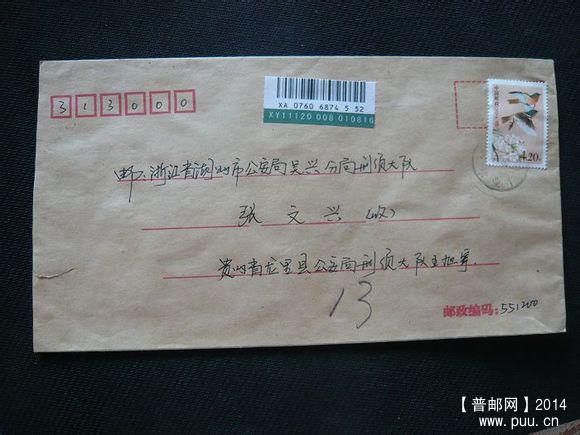 313000
XA 0760 6874 5 52
XY11120 008 010816
4.20元
邮:浙江省湖州市公安局吴兴分局刑侦大队
张文兴(收)
贵州省龙里县公安局刑侦大队王旭军
13
邮政编码:551200
【普邮网】2014
www.puu.cn